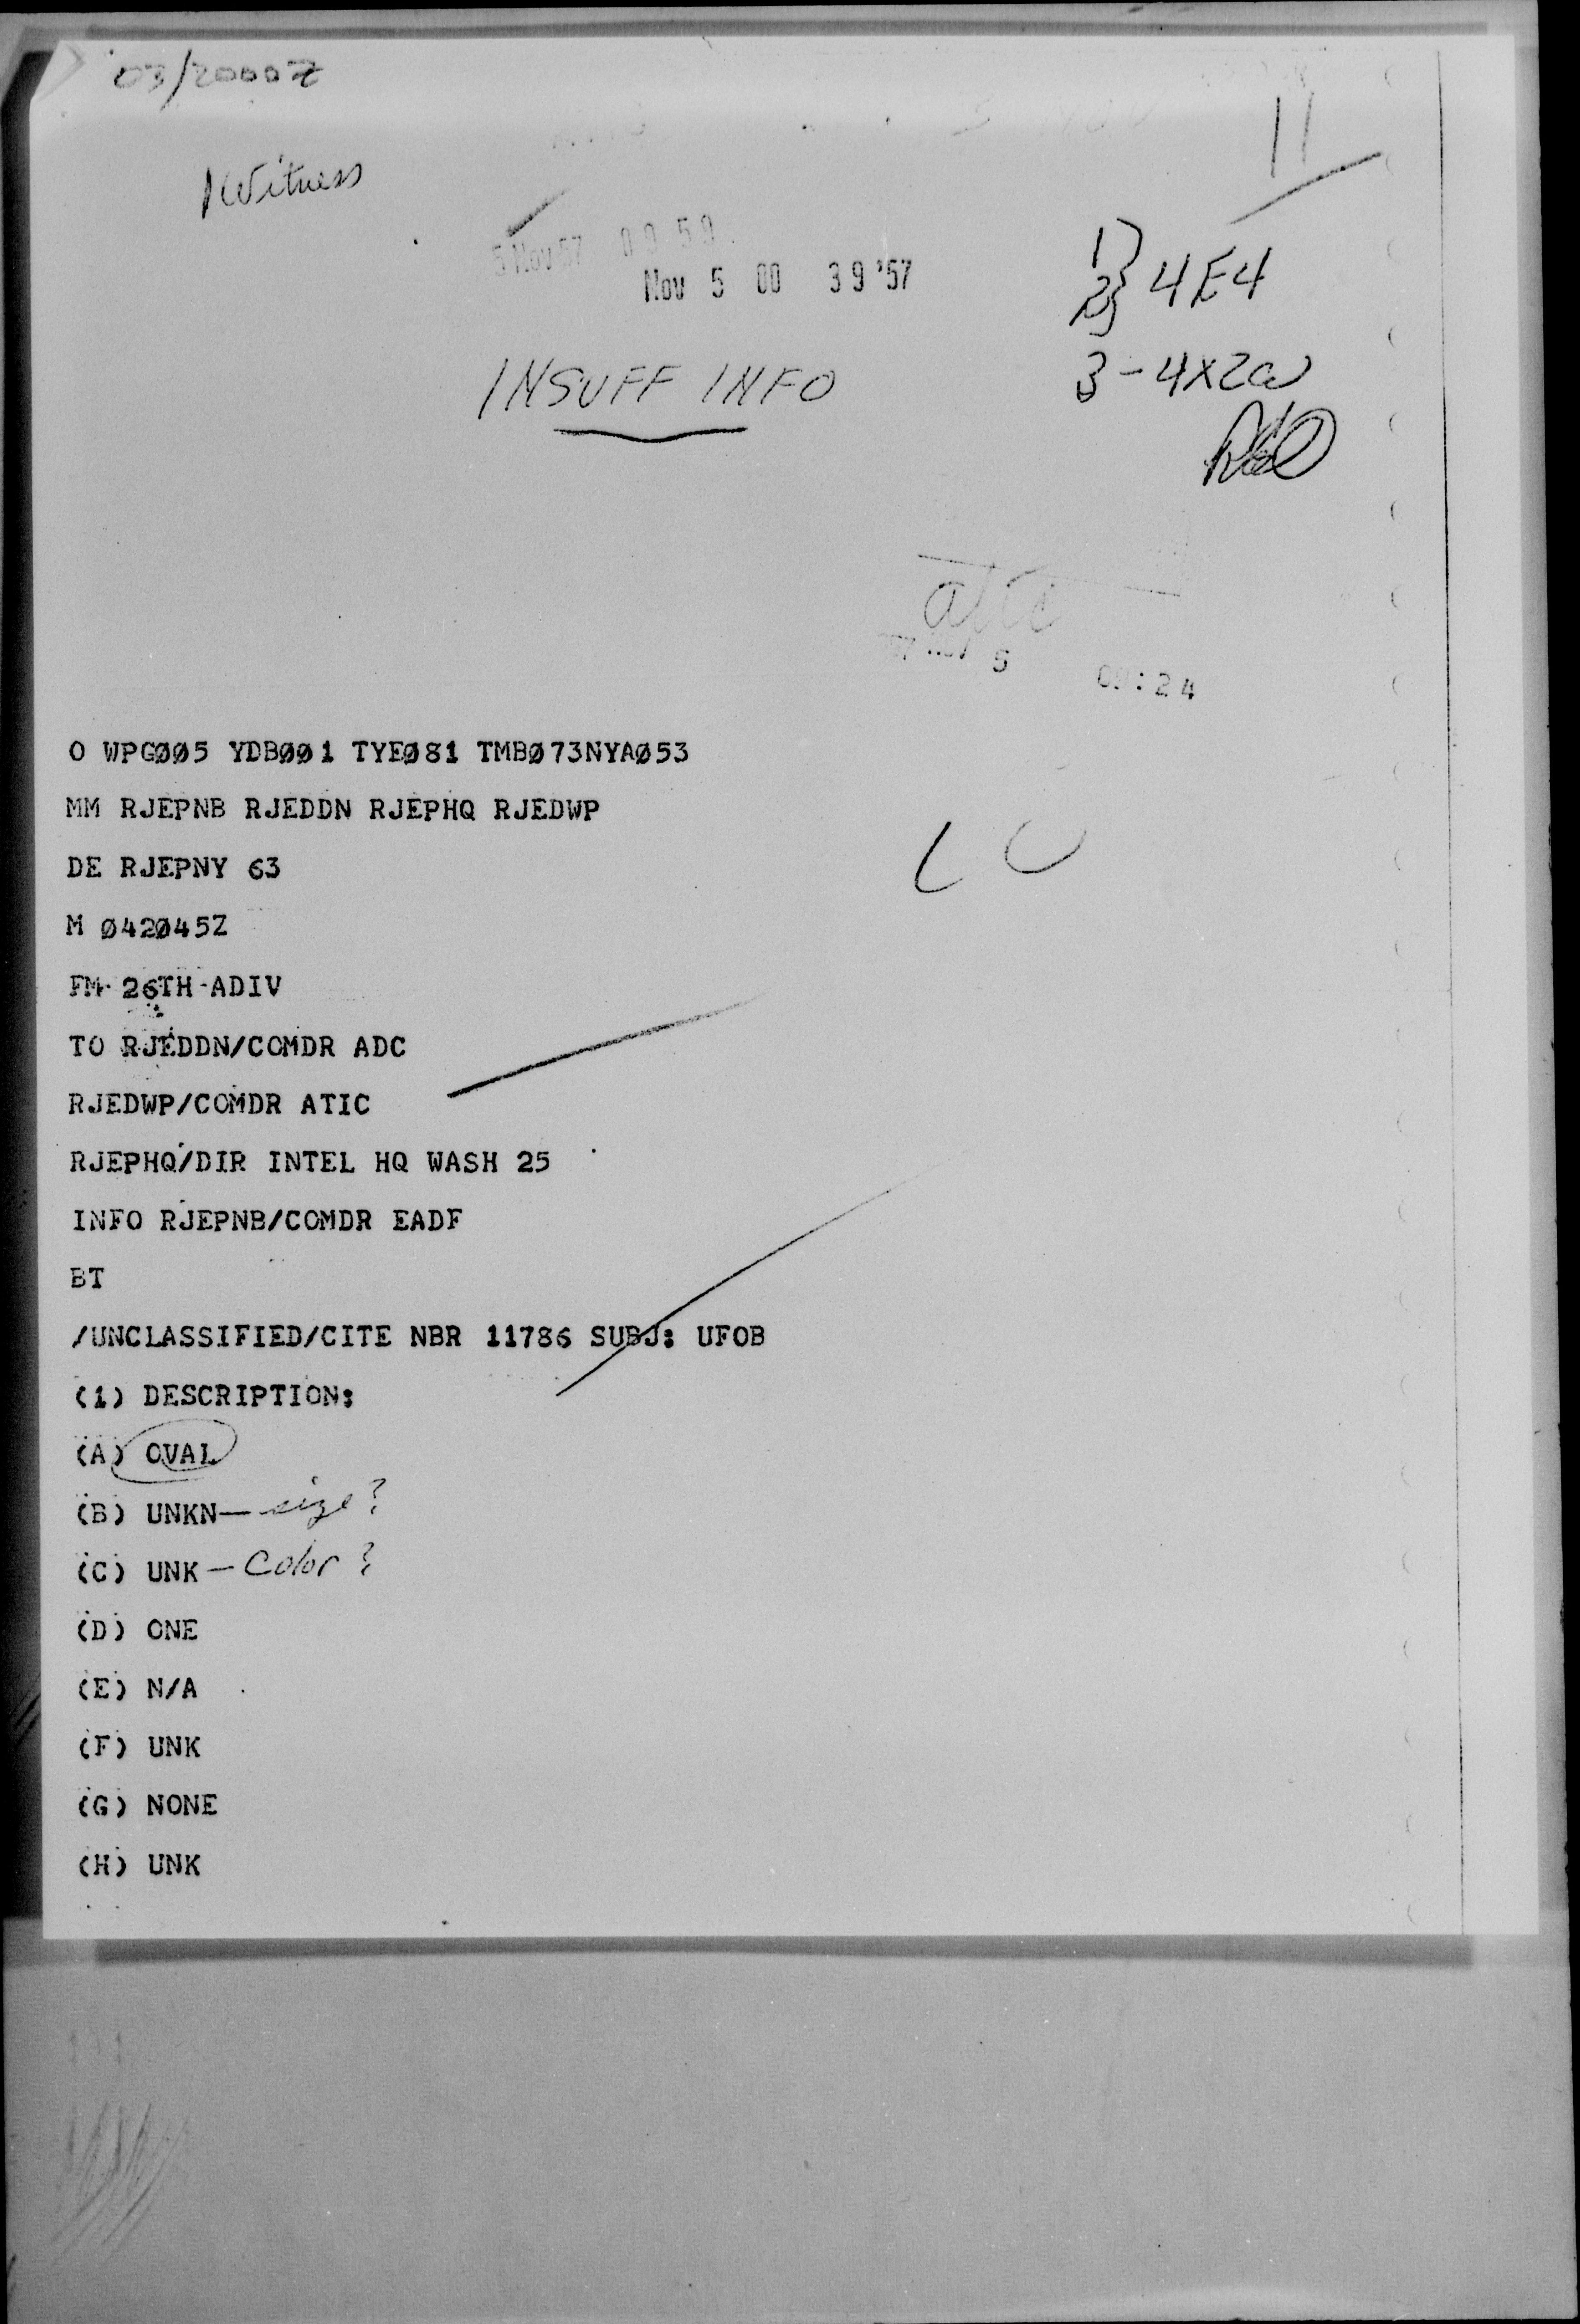 03/2000Z
1 Witness
11
5 Nov 57 09 59
Nov 5 00 39 '57
1} 4E4
2}
INSUFF INFO
3-4X2a
5
:24
O WPGØØ5 YDBØØ1 TYEØ81 TMBØ73NYAØ53
MM RJEPNB RJEDDN RJEPHQ RJEDWP
DE RJEPNY 63
M Ø42Ø45Z
FM 26TH ADIV
TO RJEDDN/COMDR ADC
RJEDWP/COMDR ATIC
RJEPHQ/DIR INTEL HQ WASH 25
INFO RJEPNB/COMDR EADF
BT
/UNCLASSIFIED/CITE NBR 11786 SUBJ: UFOB
(1) DESCRIPTION:
(A) OVAL
(B) UNKN — size?
(C) UNK — Color?
(D) ONE
(E) N/A
(F) UNK
(G) NONE
(H) UNK